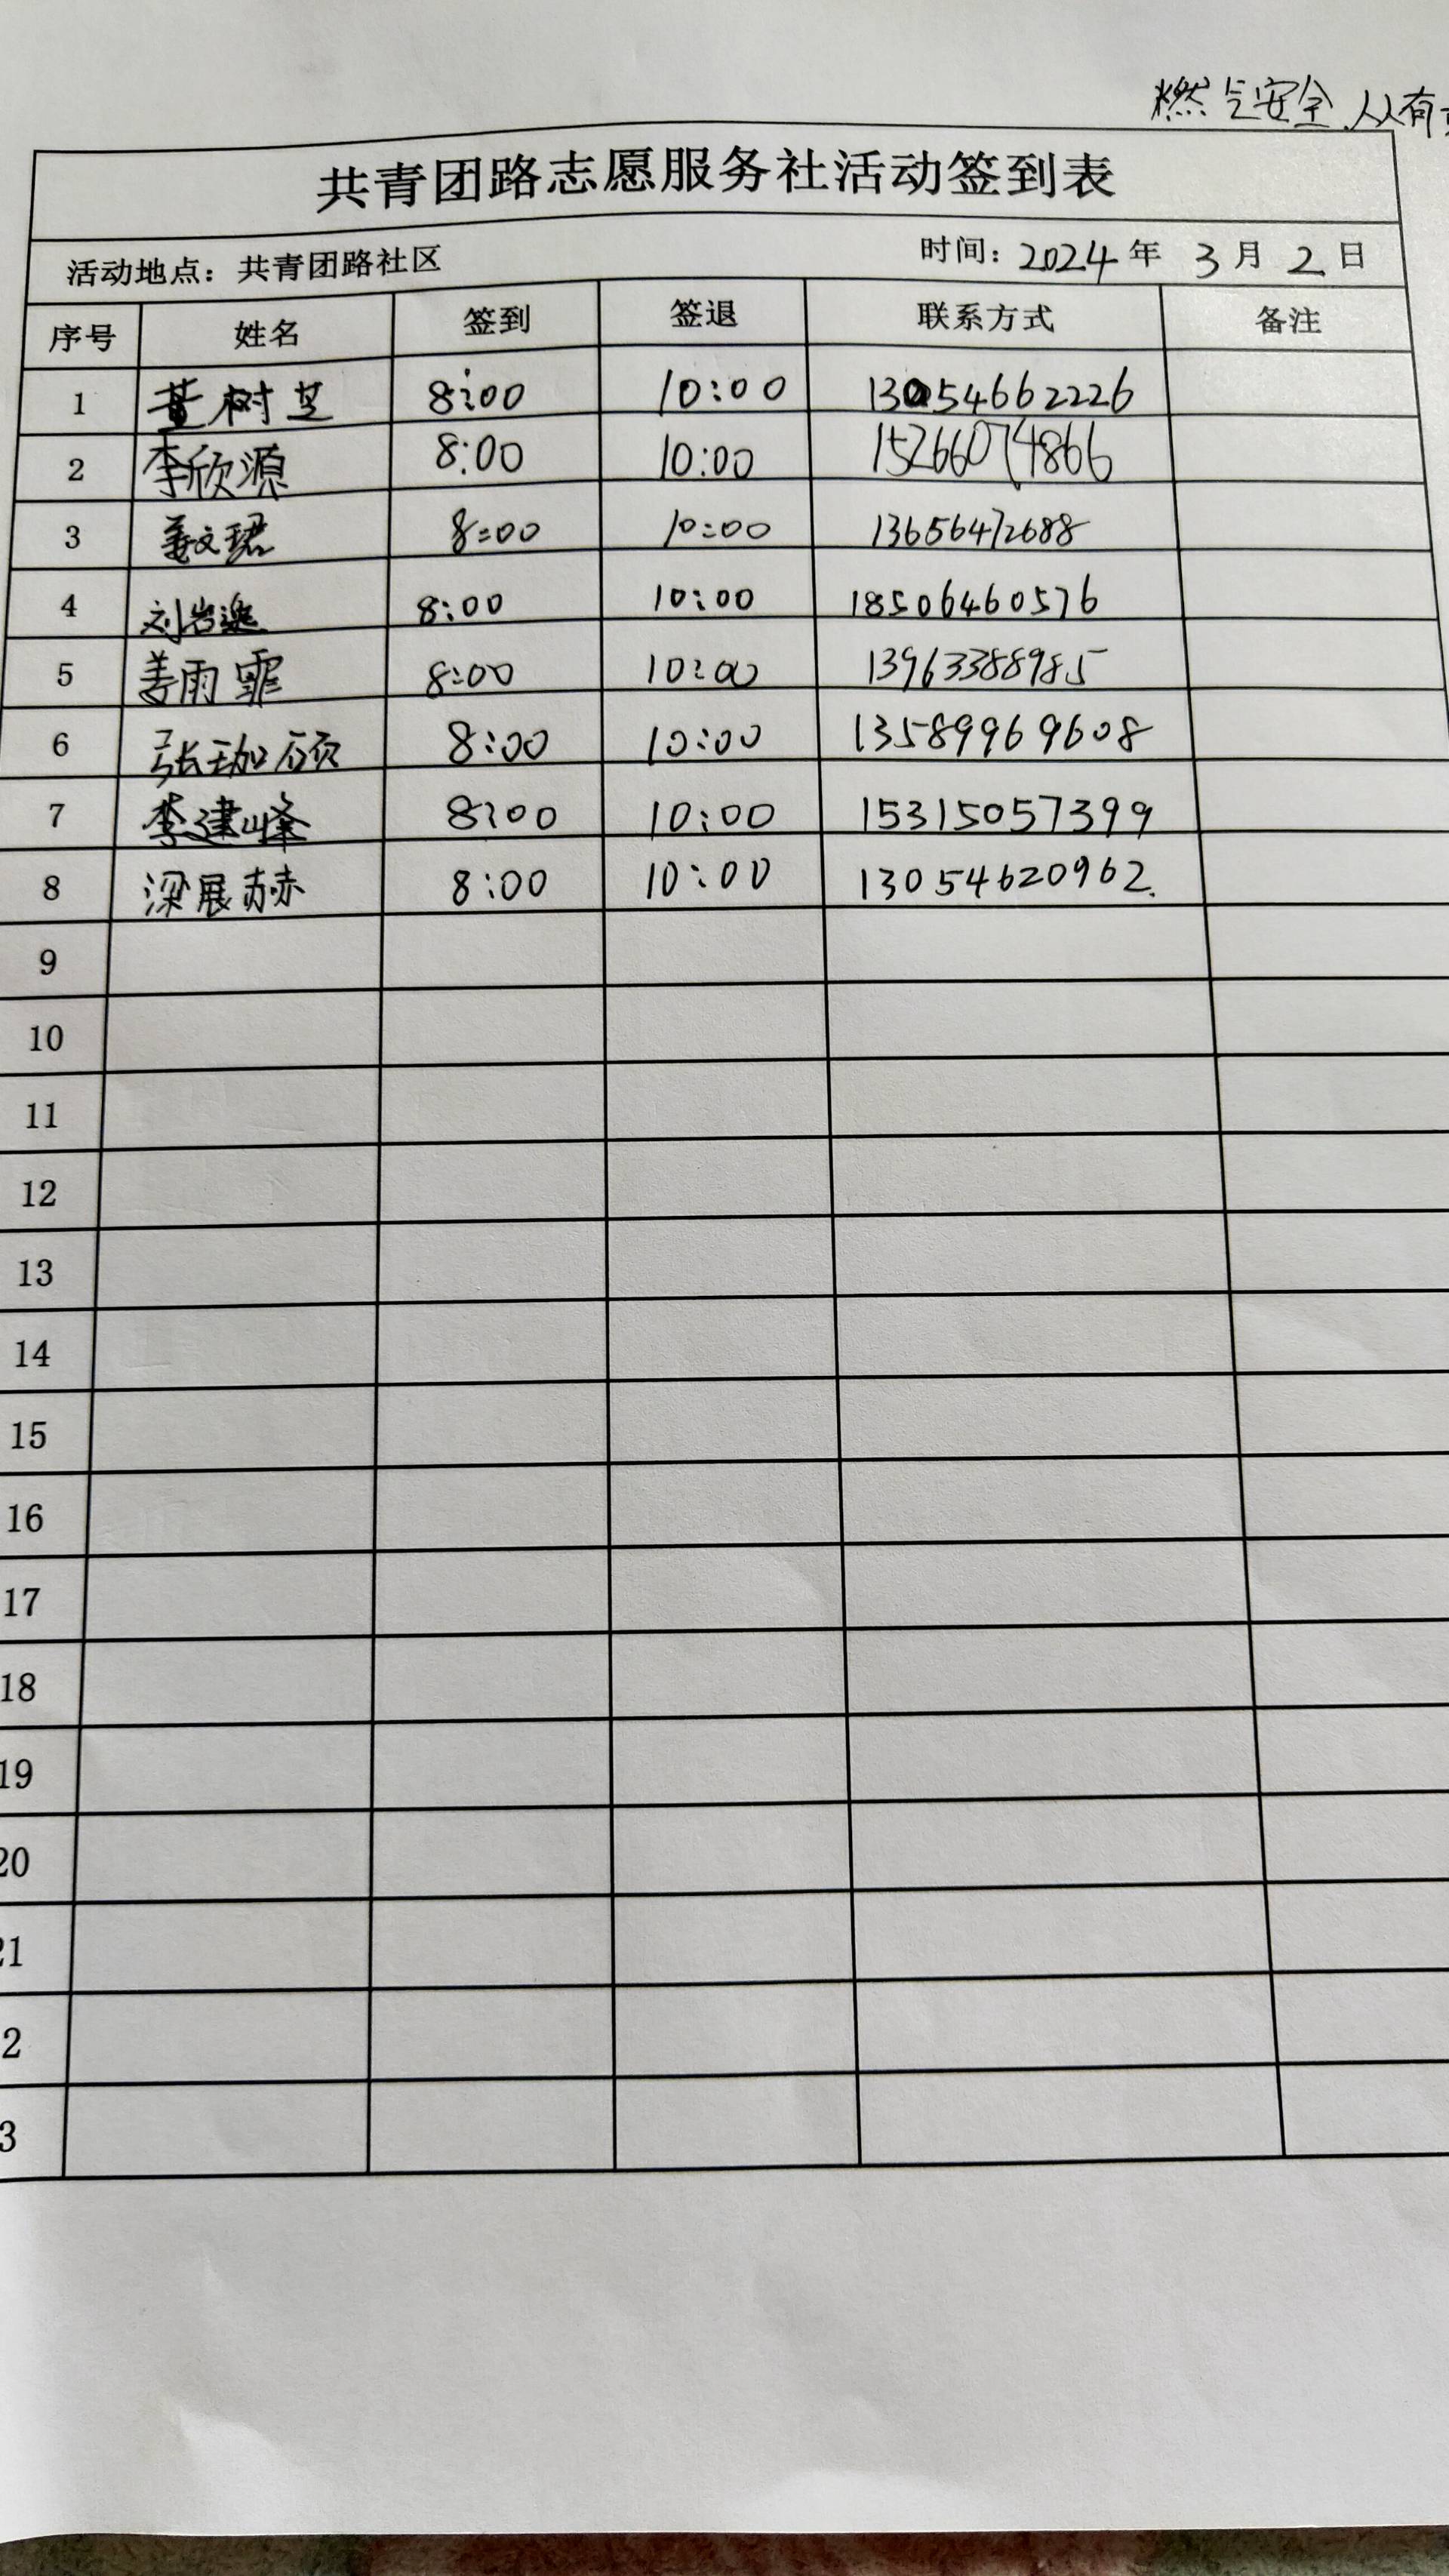 燃气安全,从有
共青团路志愿服务社活动签到表
活动地点：共青团路社区 时间：2024年 3月 2日
序号 姓名 签到 签退 联系方式 备注
1 董树芝 8:00 10:00 13054662226
2 李欣源 8:00 10:00 15266074866
3 姜文珺 8:00 10:00 13656472688
4 刘岩逸 8:00 10:00 18506460576
5 姜雨霏 8:00 10:00 13963388985
6 张珈硕 8:00 10:00 13589969608
7 李建峰 8:00 10:00 15315057399
8 梁展赫 8:00 10:00 13054620962.
9
10
11
12
13
14
15
16
17
18
19
20
21
2
3